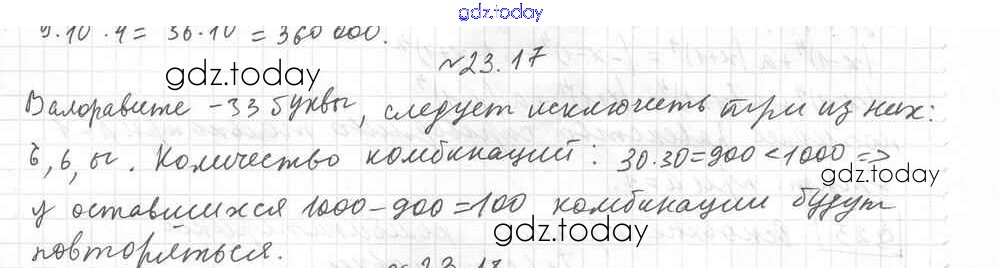 gdz.today
9.10 . 4 = 36.10 = 360 000.
gdz.today
№23.17
В алфавите - 33 буквы, следует исключить три из них:
ь, ъ, ы. Количество комбинаций: 30.30=900 < 1000 =>
gdz.today
у оставшихся 1000-900=100 комбинации будут
gdz.today
повторяться.